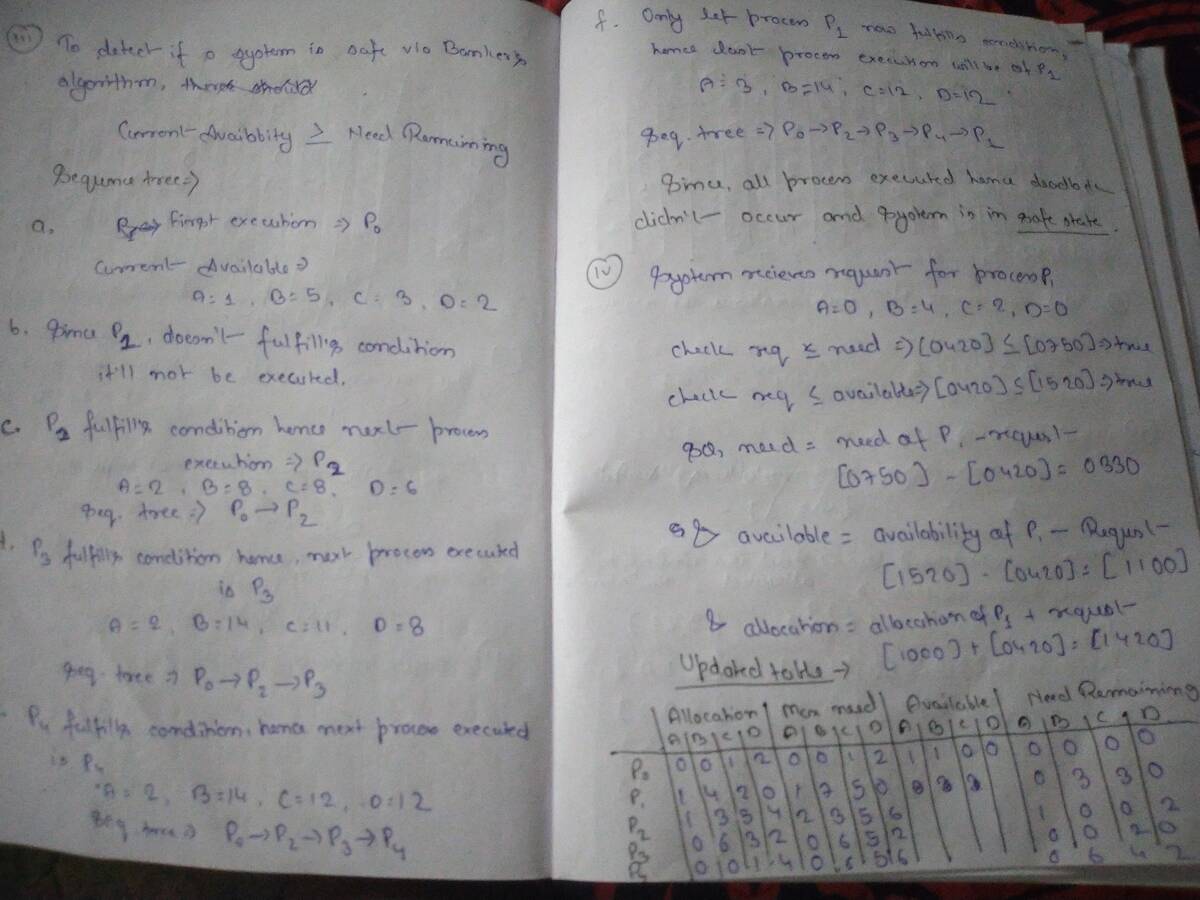 iii To detect if a system is safe via Banker's
algorithm,
Current Avaibility ≥ Need Remaining
Sequence tree ⇒
a. first execution ⇒ P0
Current Available ⇒
A=1, B=5, C=3, D=2
b. Since P1, doesn't fulfills condition
it'll not be executed.
c. P2 fulfills condition hence next process
execution ⇒ P2
A=2, B=8, C=8, D=6
Seq. tree ⇒ P0→P2
d. P3 fulfills condition hence, next process executed
is P3
A=2, B=14, C=11, D=8
Seq. tree ⇒ P0→P2→P3
P4 fulfills condition, hence next process executed
is P4
A=2, B=14, C=12, D=12
Seq tree ⇒ P0→P2→P3→P4
f. Only left process P1 now fulfills condition,
hence last process execution will be of P1
A=3, B=14, C=12, D=12
Seq. tree ⇒ P0→P2→P3→P4→P1
Since, all process executed hence deadlock
didn't occur and system in safe state.
iv System recieves request for process P1
A=0, B=4, C=2, D=0
check req ≤ need ⇒ [0420] ≤ [0750] ⇒ true
check req ≤ available ⇒ [0420] ≤ [1520] ⇒ true
So, need = need of P1 - request
[0750] - [0420] = 0330
available = availability of P1 - Request
[1520] - [0420] = [1100]
& allocation = allocation of P1 + request
[1000] + [0420] = [1420]
Updated table →
Allocation Max need Available Need Remaining
A B C D A B C D A B C D A B C D
P0 0 0 1 2 0 0 1 2 1 1 0 0 0 0 0 0
P1 1 4 2 0 1 7 5 0 0 3 3 0
P2 1 3 5 4 2 3 5 6 1 0 0 2
P3 0 6 3 2 0 6 5 2 0 0 2 0
P4 0 0 1 4 0 6 5 6 0 6 4 2